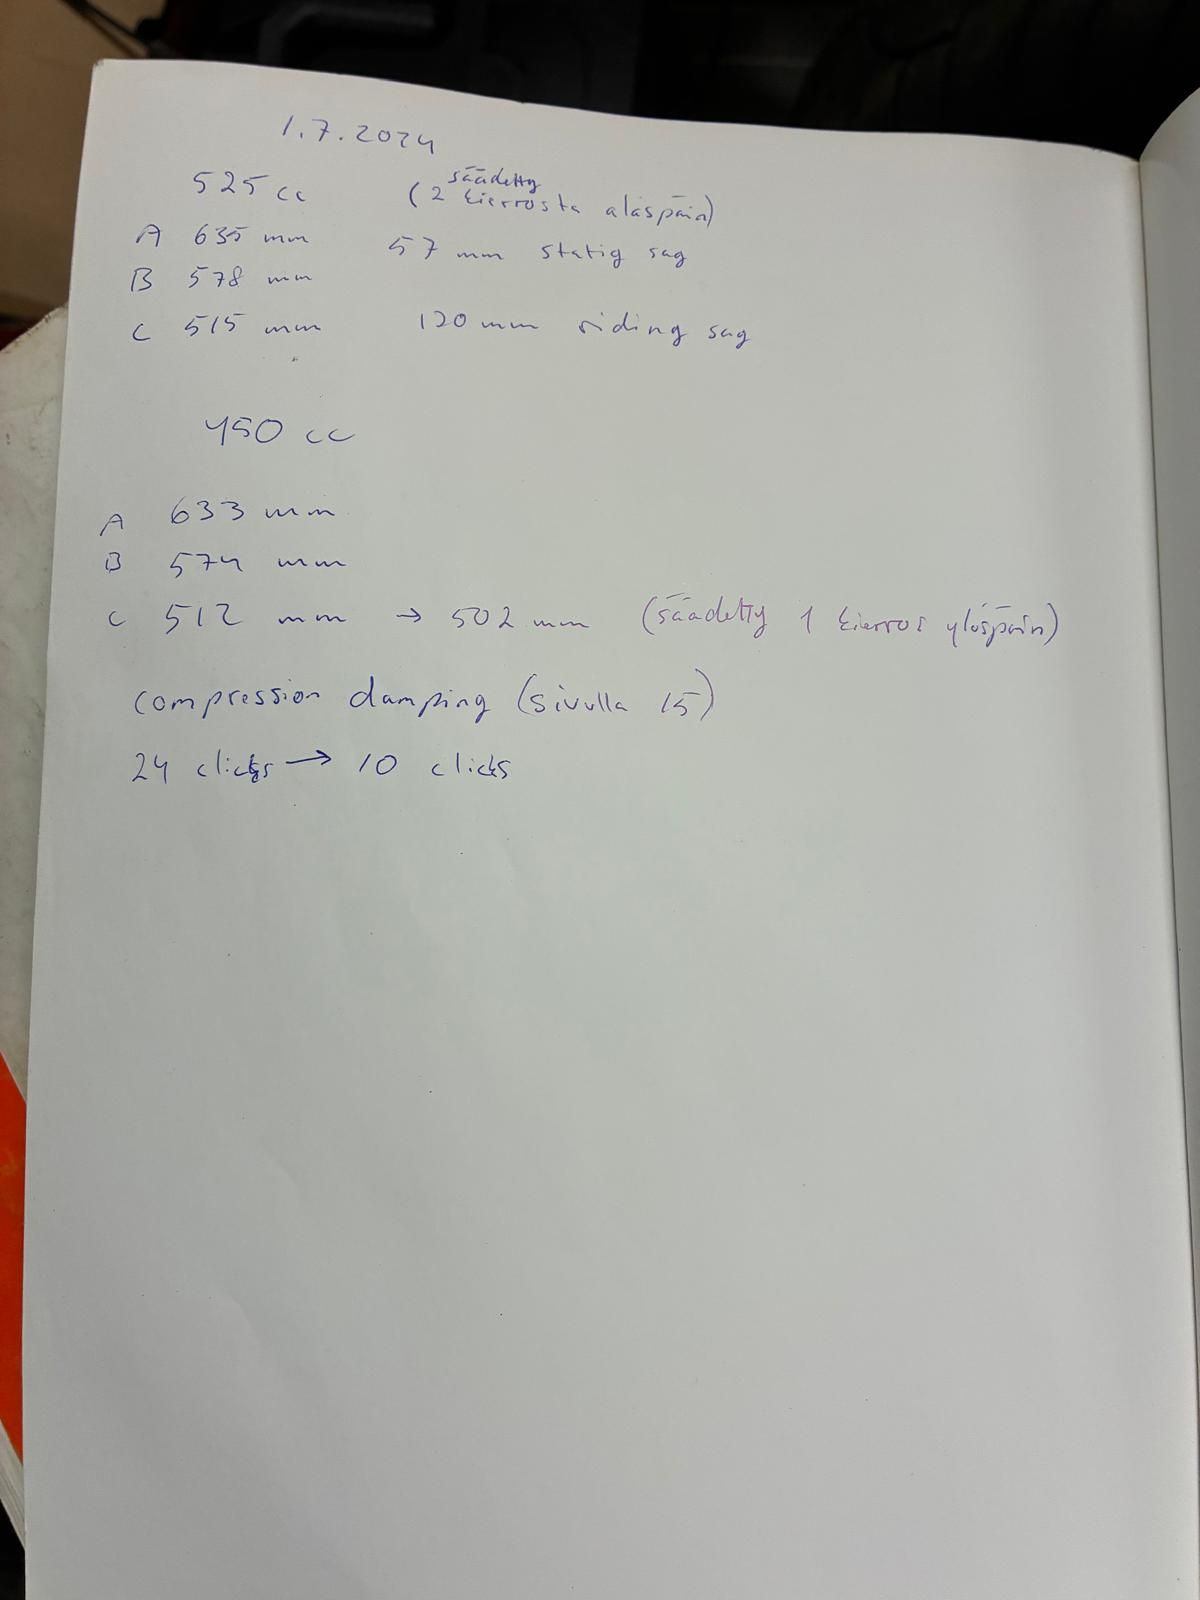 1.7.2024
525 cc (2 säädetty kierrosta alaspäin)
A 635 mm 57 mm statig sag
B 578 mm
C 515 mm 120 mm riding sag
450 cc
A 633 mm
B 574 mm
C 512 mm → 502 mm (säädetty 1 kierros ylöspäin)
compression damping (sivulla 15)
24 clicks → 10 clicks